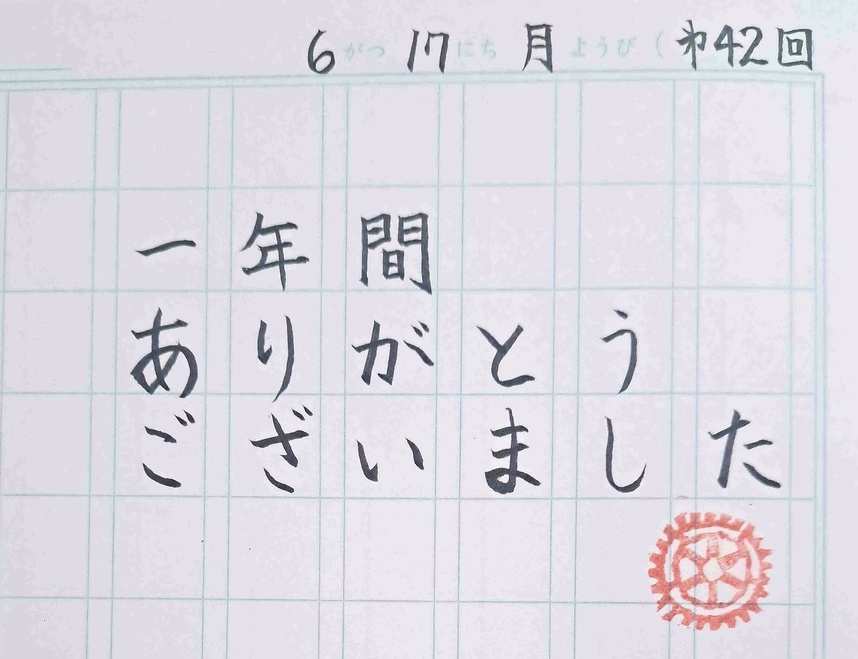 6がつ17にち月ようび(第42回
一年間
ありがとう
ございました